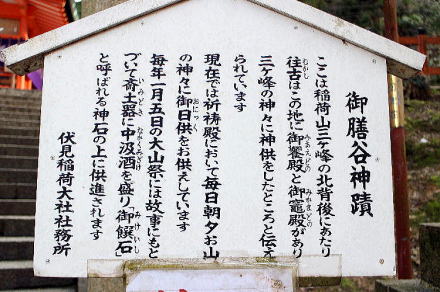 御膳谷神蹟
ここは稲荷山三ケ峰の北背後にあたり
往古はこの地に御饗殿と御竈殿があり
むかし
みあえどの
みかまどの
三ケ峰の神々に神供をしたところと伝え
られています
現在では祈祷殿において毎日朝夕お山
の神々に御日供をお供えしています
おにっく
毎年一月五日の大山祭には故事にもと
づいて斎土器に中汲酒を盛り「御饌石」
いみどき
なかくみざけ
みけいし
と呼ばれる神石の上に供進されます
伏見稲荷大社社務所